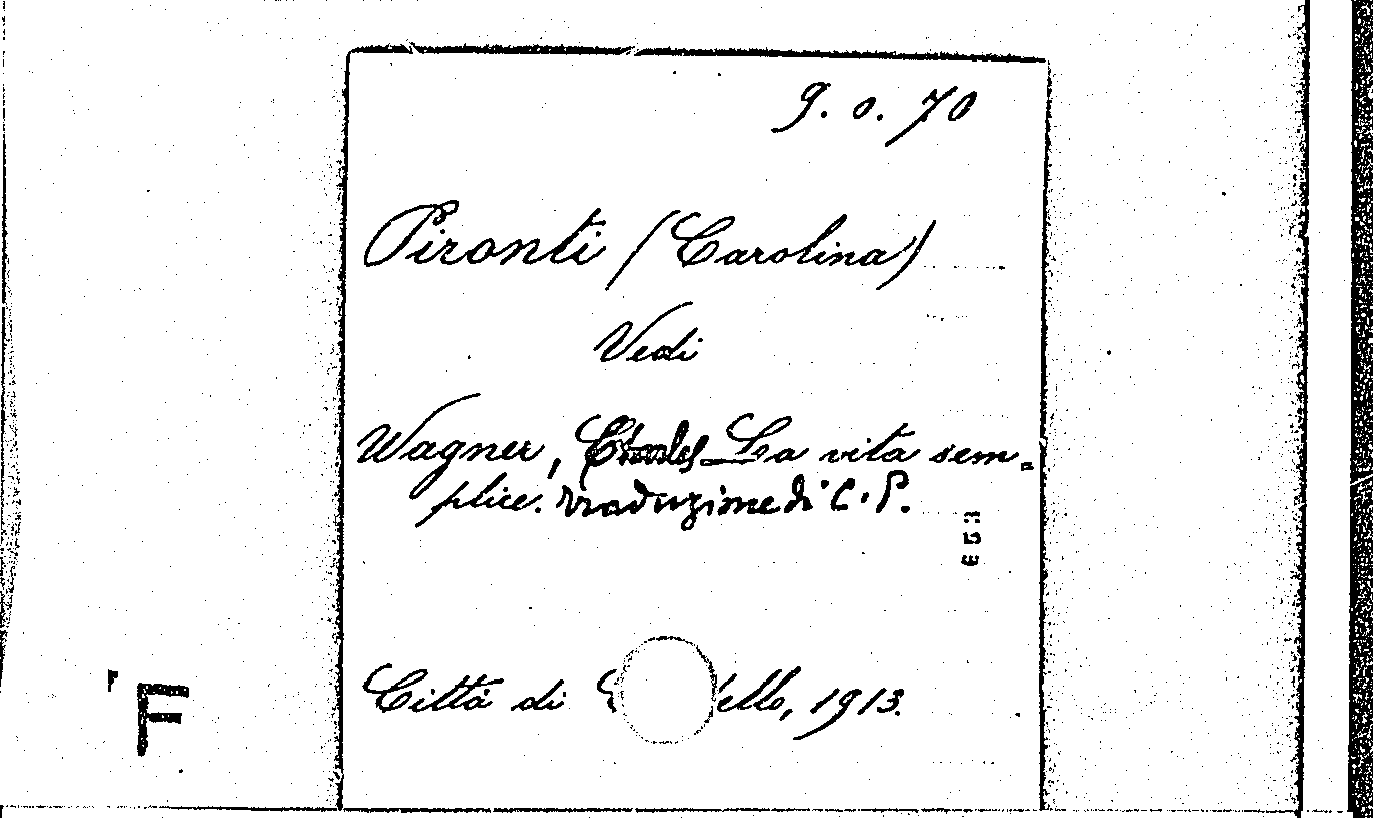 9. o. 70
Pironti (Carolina)
Vedi
Wagner, La vita sem=
plice. Traduzione di C. P.
Città di ello, 1913.
F